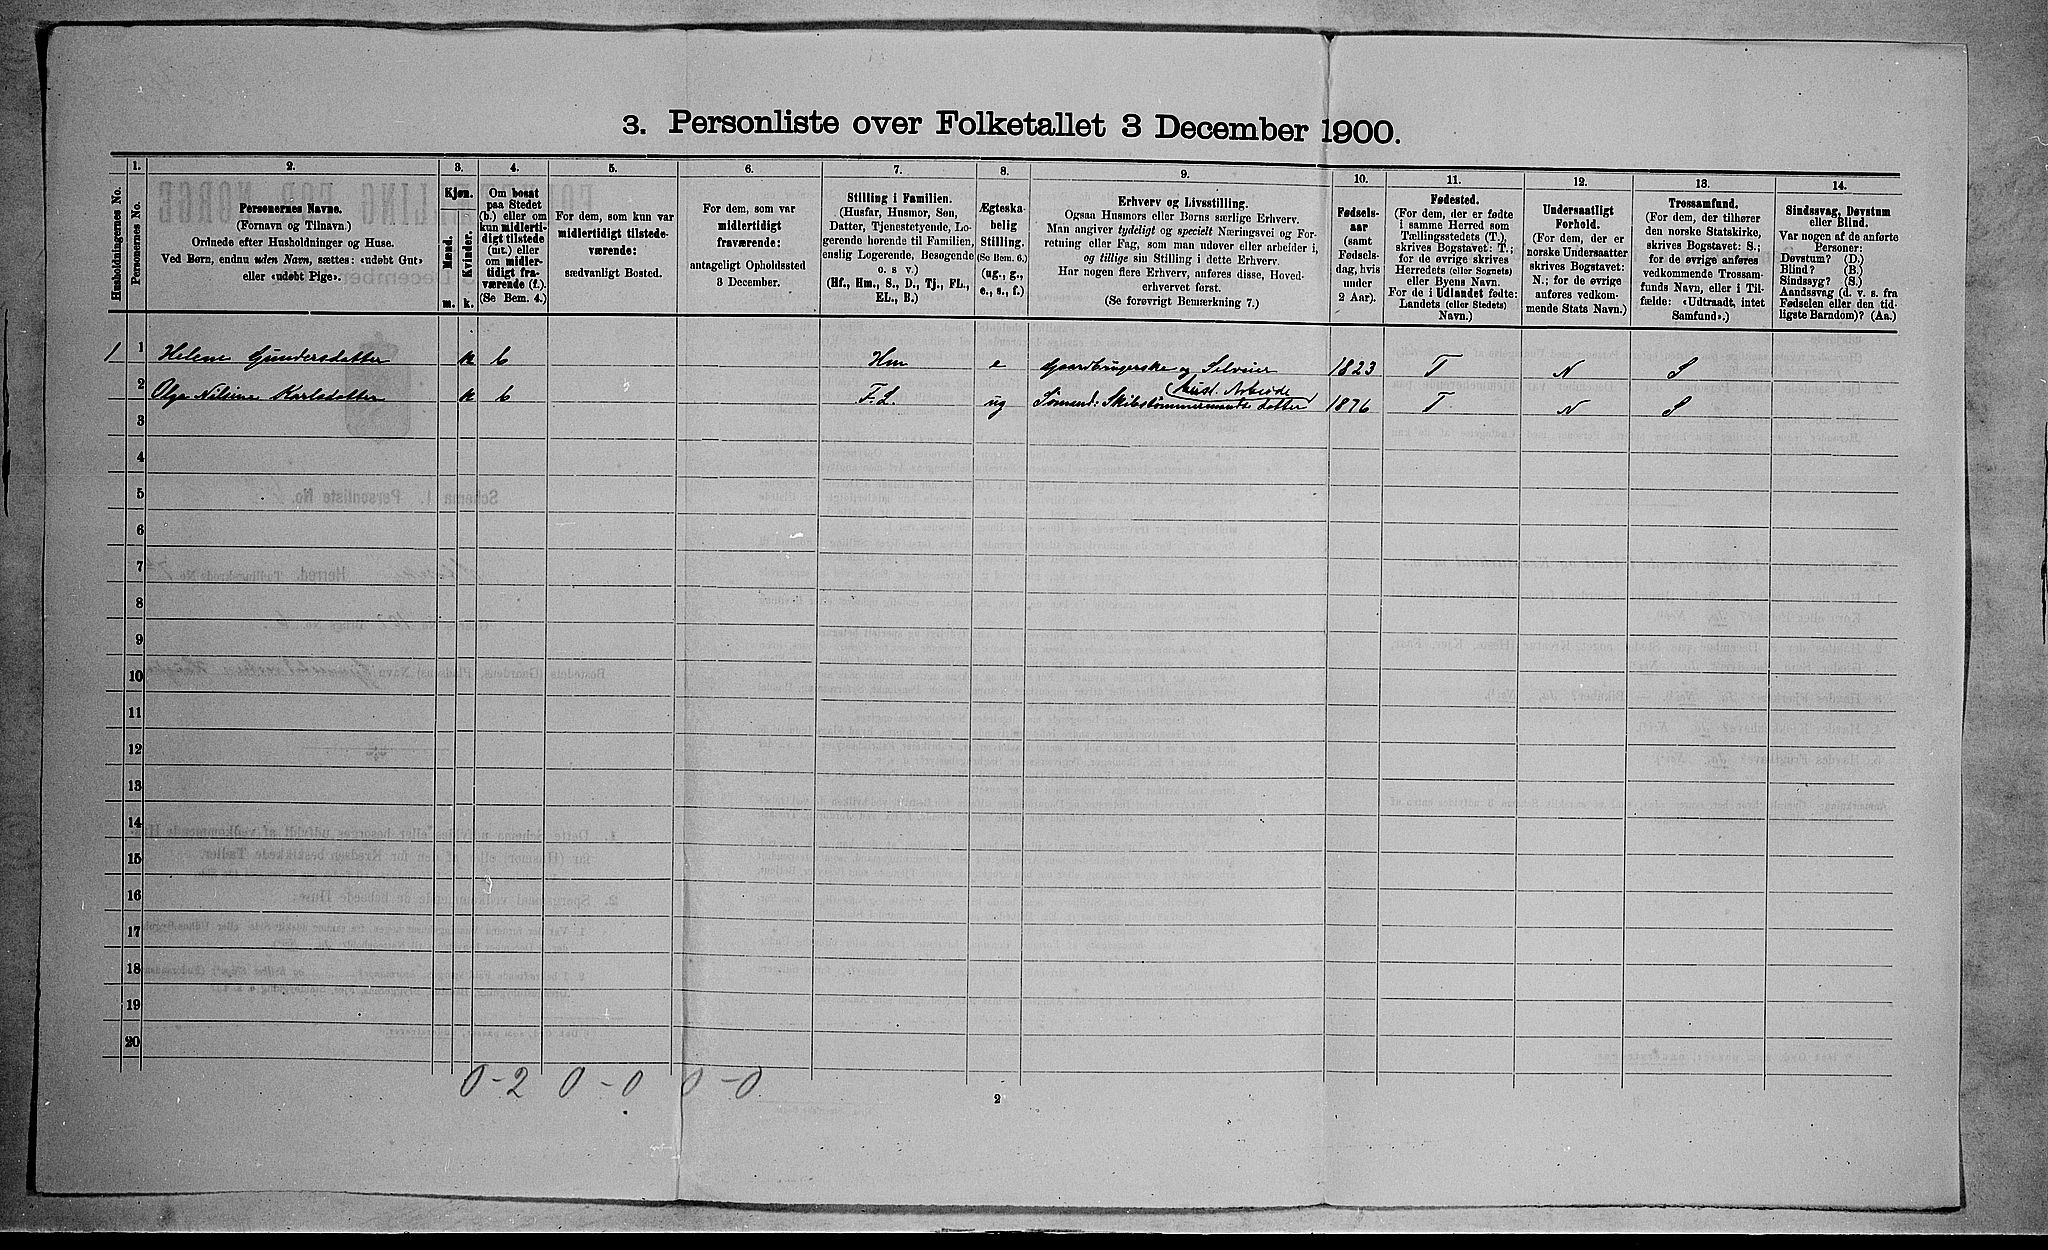 3. Personliste over Folketallet 3 December 1900.
Husholdningernes No.
1.
Personernes No.
2.
Personernes Navne.
(Fornavn og Tilnavn.)
Ordnede efter Husholdninger og Huse.
Ved Børn, endnu uden Navn, sættes: «udøbt Gut»
eller «udøbt Pige».
3.
Kjøn.
Mænd.
Kvinder.
m.
k.
4.
Om bosat
paa Stedet
(b.) eller om
kun midlerti-
digt tilstede
(mt.) eller
om midler-
tidigt fra-
værende (f.).
(Se Bem. 4.)
5.
For dem, som kun var
midlertidigt tilstede-
værende:
sædvanligt Bosted.
6.
For dem, som var
midlertidigt
fraværende:
antageligt Opholdssted
3 December.
7.
Stilling i Familien.
(Husfar, Husmor, Søn,
Datter, Tjenestetyende, Lo-
gerende hørende til Familien,
enslig Logerende, Besøgende
o. s v.)
(Hf., Hm., S., D., Tj., FL.,
EL., B.)
8.
Ægteska-
belig
Stilling.
(Se Bem. 6.)
(ug., g.,
e., s., f.)
9.
Erhverv og Livsstilling.
Ogsaa Husmors eller Børns særlige Erhverv.
Man angiver tydeligt og specielt Næringsvei og For-
retning eller Fag, som man udøver eller arbeider i,
og tillige sin Stilling i dette Erhverv.
Har nogen flere Erhverv, anføres disse, Hoved-
erhvervet først.
(Se forøvrigt Bemærkning 7.)
10.
Fødsels-
aar
(samt
Fødsels-
dag, hvis
under
2 Aar).
11.
Fødested.
(For dem, der er fødte
i samme Herred som
Tællingsstedets (T.),
skrives Bogstavet: T.;
for de øvrige skrives
Herredets (eller Sognets)
eller Byens Navn.
For de i Udlandet fødte:
Landets (eller Stedets)
Navn.)
12.
Undersaatligt
Forhold.
(For dem, der er
norske Undersaatter
skrives Bogstavet:
N.; for de øvrige
anføres vedkom-
mende Stats Navn.)
13.
Trossamfund.
(For dem, der tilhører
den norske Statskirke,
skrives Bogstavet: S.;
for de øvrige anføres
vedkommende Trossam-
funds Navn, eller i Til-
fælde: «Udtraadt, intet
Samfund».)
14.
Sindssvag, Døvstum
eller Blind.
Var nogen af de anførte
Personer:
Døvstum? (D.)
Blind? (B.)
Sindssyg? (S.)
Aandssvag (d. v. s. fra
Fødselen eller den tid-
ligste Barndom)? (Aa.)
1 1 Helene Gundersdatter k b Hm e Gaardbrugerske og Selveier 1823 T N S
Hust. Arbeide
2 Olga Nilsine Karlsdatter k b F.L. ug Sømand: Skibstømmermands datter 1876 T N S
3
4
5
6
7
8
9
10
11
12
13
14
15
16
17
18
19
20
0-2 0-0 0-0
2